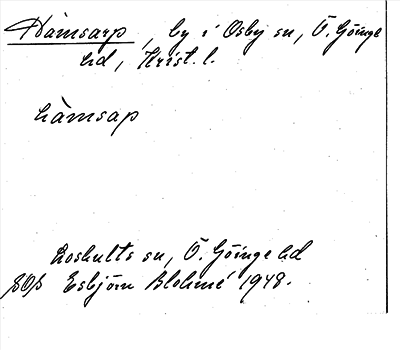 Hämsarp, by i Osby sn, Ö. Göinge
hd, Krist. l.
hàmsap
Loshults sn, Ö. Göinge hd
Esbjörn Blohmé 1948.